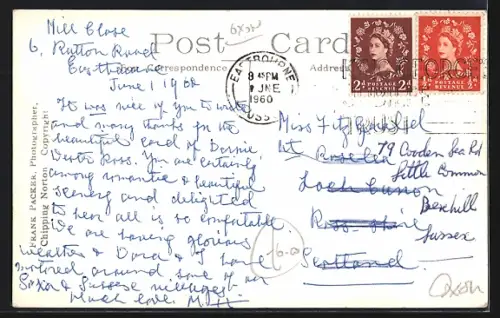 Hill Close
6, Ratton Road
Eastbourne
June 1 1960
Post Card
Correspondence
Address
EASTBOURNE
8 45 PM
1 JNE
1960
SUSSEX
POSTAGE
REVENUE
2D
POSTAGE
REVENUE
It was nice of you to write
and many thanks for the
beautiful card of Bonnie
Wester Ross. You are certainly
among romantic & beautiful
scenery and delighted
to hear all is so comfortable.
We are having glorious
weather & Dora & I have
motored around some of our
Sussex villages
Much love. M.
Miss Fitzgerald
79 Cooden Sea Rd
Little Common
Bexhill
Sussex
Loch Carron
Ross-shire
Scotland
Oxon
FRANK PACKER, Photographer,
Chipping Norton Copyright